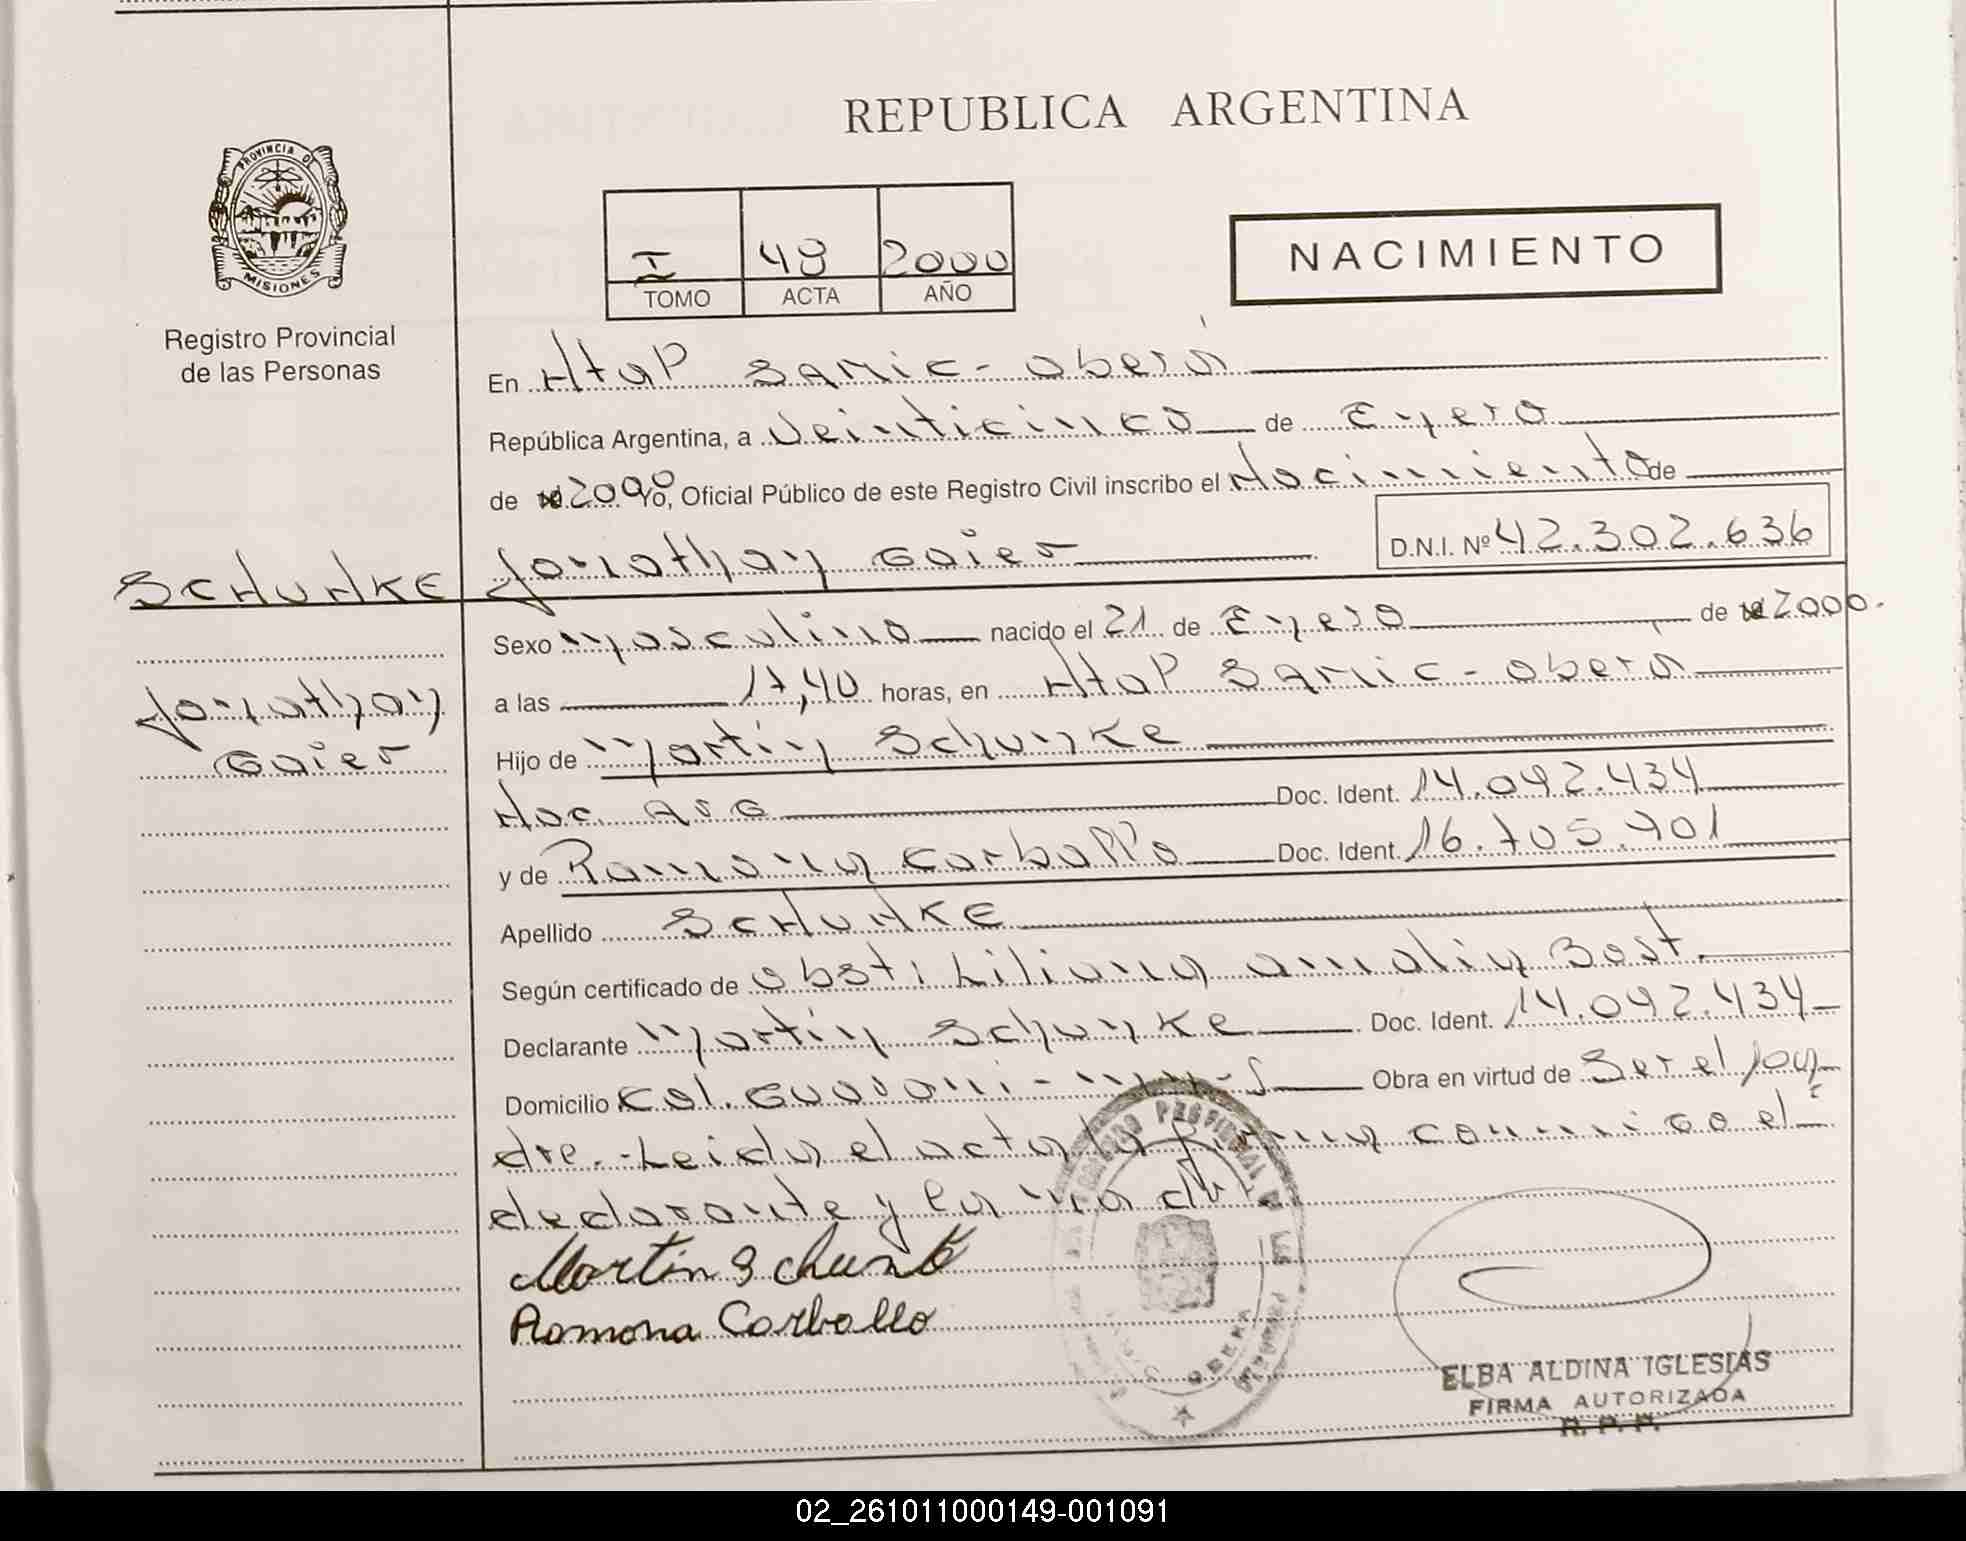 REPUBLICA ARGENTINA
PROVINCIA DE
MISIONES
Registro Provincial
de las Personas
I 48 2000
TOMO ACTA AÑO
NACIMIENTO
En Htal SAMIC - Oberá
República Argentina, a Veinticinco de Enero
de 2000 Yo, Oficial Público de este Registro Civil inscribo el Nacimiento de
SCHUNKE Jonathan Gaier D.N.I. Nº 42.302.636
Sexo Masculino nacido el 21 de Enero de 2000.
Jonathan
Gaier
a las 17,40 horas, en Htal SAMIC - Oberá
Hijo de Martin Schunke
Nac. Arg Doc. Ident. 14.092.434
y de Ramona Carballo Doc. Ident. 16.705.901
Apellido SCHUNKE
Según certificado de Obst: Liliana Amalia Bost.
Declarante Martin Schunke Doc. Ident. 14.092.434
Domicilio Col. Guarani - Mnes Obra en virtud de Ser el pa
dre.- Leida el acta la firma conmigo el
declarante y la madre
Martin Schunk
Ramona Carballo
PROVINCIAL DE LAS
OBERA
ELBA ALDINA IGLESIAS
FIRMA AUTORIZADA
R. P. P.
02_261011000149-001091